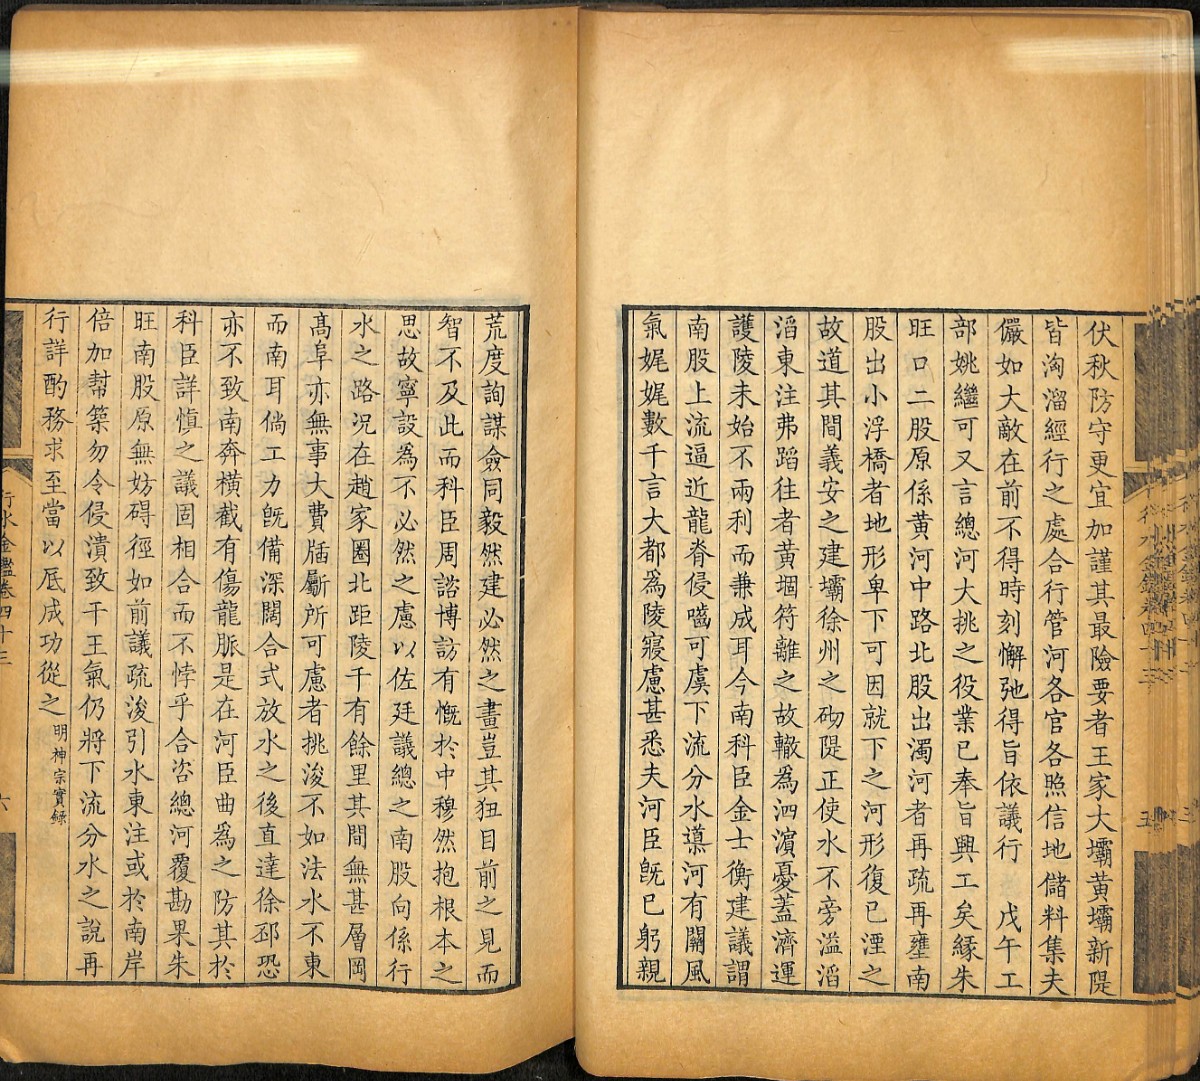 伏秋防守更宜加謹其最險要者王家大壩黃壩新隄
皆淘溜經行之處合行管河各官各照信地儲料集夫
儼如大敵在前不得時刻懈弛得旨依議行　戊午工
部姚繼可又言總河大挑之役業已奉旨興工矣緣朱
旺口二股原係黃河中路北股出濁河者再疏再壅南
股出小浮橋者地形卑下可因就下之河形復已湮之
故道其間義安之建壩徐州之砌隄正使水不旁溢滔
滔東注弗蹈往者黃堌符離之故轍為泗濱憂蓋濟運
護陵未始不兩利而兼成耳今南科臣金士衡建議謂
南股上流逼近龍脊侵嚙可虞下流分水導河有關風
氣娓娓數千言大都為陵寢慮甚悉夫河臣旣已躬親
荒度詢謀僉同毅然建必然之畫豈其狃目前之見而
智不及此而科臣周諮博訪有慨於中穆然抱根本之
思故寧設為不必然之慮以佐廷議總之南股向係行
水之路況在趙家圈北距陵千有餘里其間無甚層岡
高阜亦無事大費牐斸所可慮者挑浚不如法水不東
而南耳倘工力旣備深闊合式放水之後直達徐邳恐
亦不致南奔橫截有傷龍脈是在河臣曲為之防其於
科臣詳慎之議固相合而不悖乎合咨總河覆勘果朱
旺南股原無妨碍徑如前議疏浚引水東注或於南岸
倍加幫築勿令侵潰致干王氣仍將下流分水之說再
行詳酌務求至當以厎成功從之 明神宗實錄
行水金鑑卷四十三
六